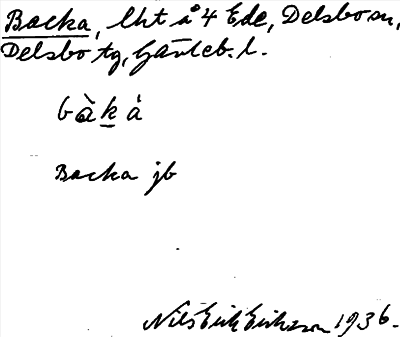 Backa, lht å 4 Ede, Delsbo sn,
Delsbo tg, Gävleb. l.
bàkȧ
Backa jb
Nils Erik Eriksson 1936.